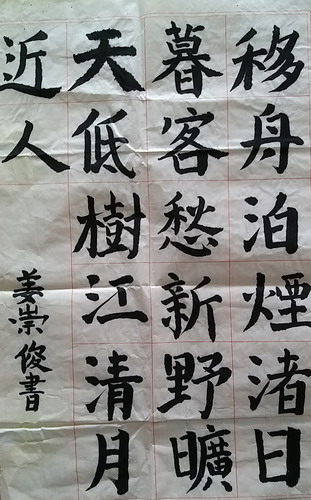 移舟泊煙渚日
暮客愁新野曠
天低樹江清月
近人
姜崇俊書